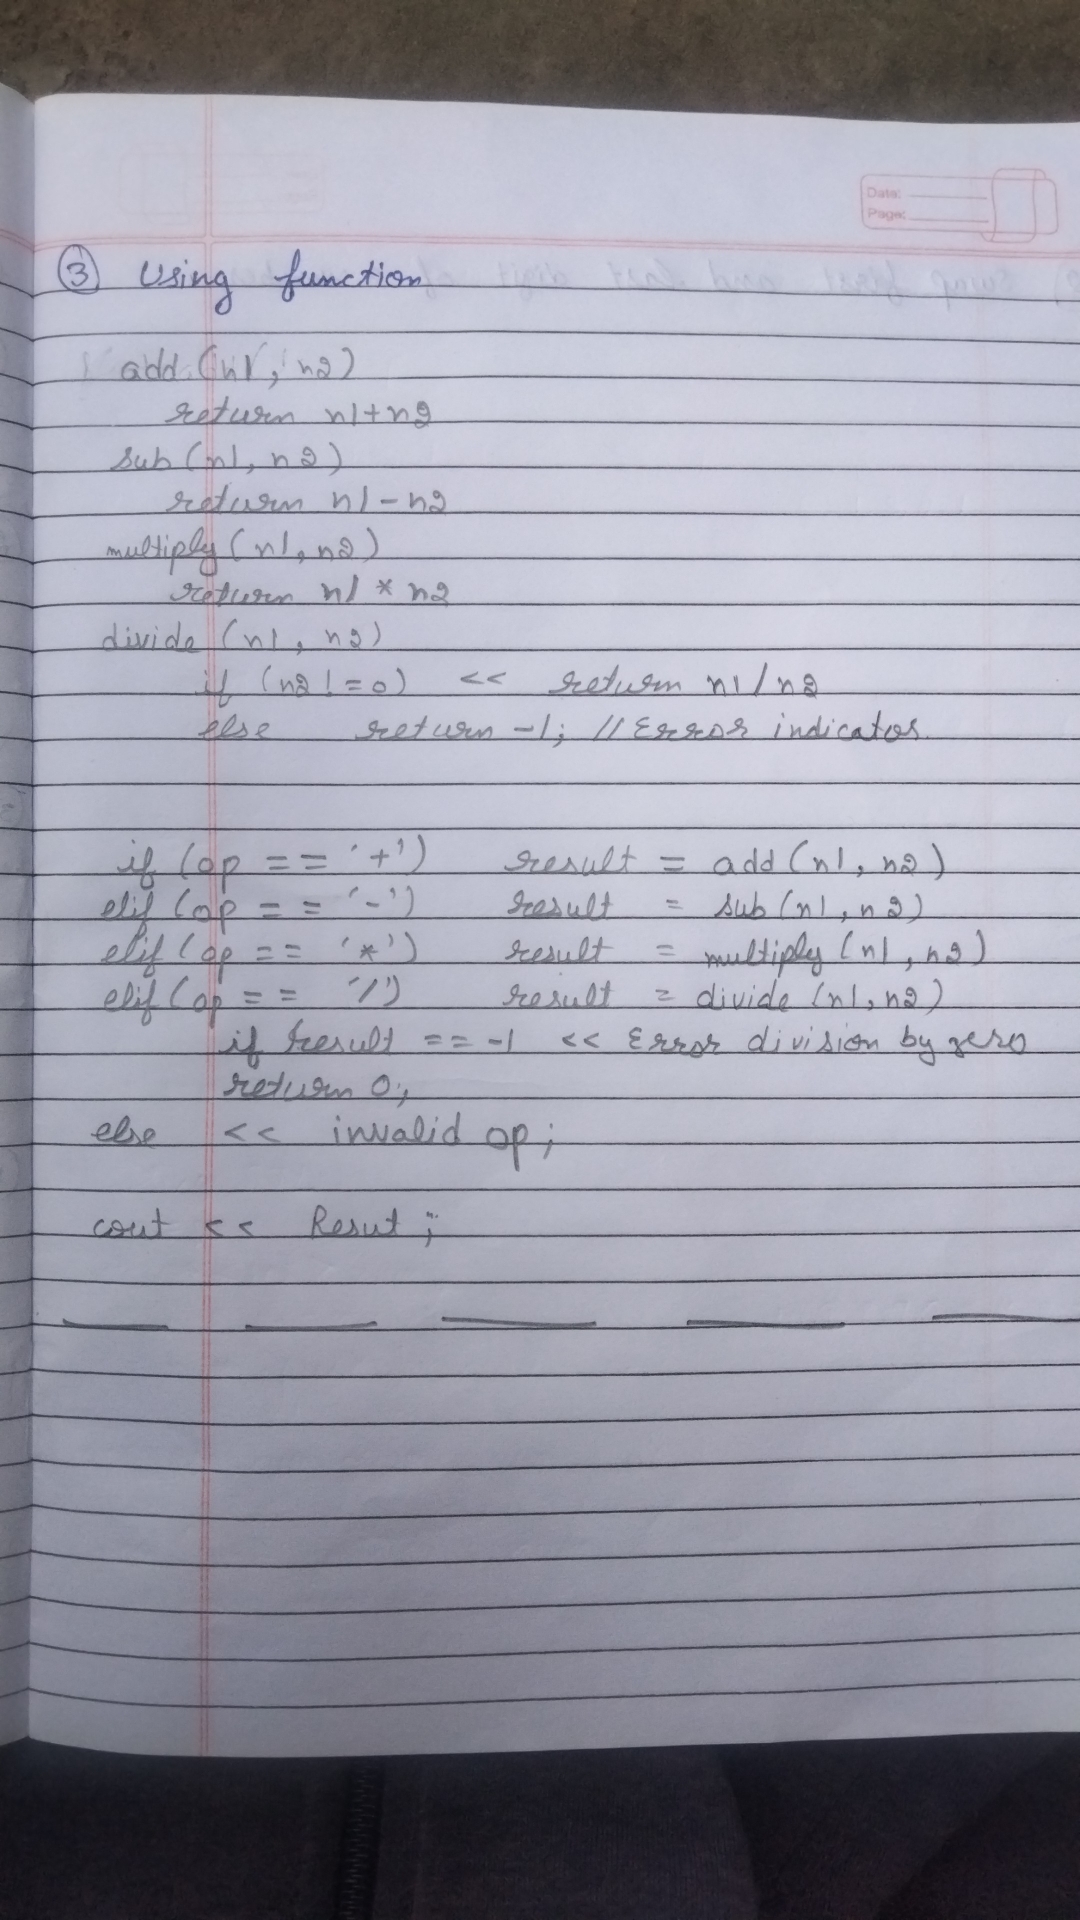 Date:
Page:
③ Using function
add (n1, n2)
return n1+n2
sub (n1, n2)
return n1-n2
multiply (n1, n2)
return n1 * n2
divide (n1, n2)
if (n2 != 0) << return n1/n2
else return -1; // Error indicator.
if (op == '+') result = add (n1, n2)
elif (op == '-') result = sub (n1, n2)
elif (op == '*') result = multiply (n1, n2)
elif (op == '/') result = divide (n1, n2)
if result == -1 << Error division by zero
return 0;
else << invalid op;
cout << Resut ;